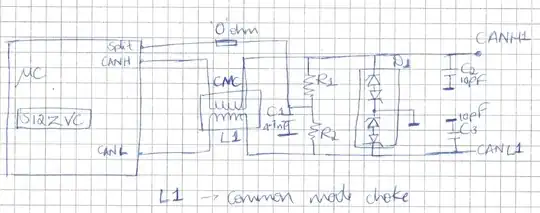 0 ohm
Split
CANH
CANH1
μC
CMC
R1
D1
C2
10pF
S12ZVC
C1
4.7nF
10pF
L1
R2
C3
CANL
CANL1
L1 → Common mode choke